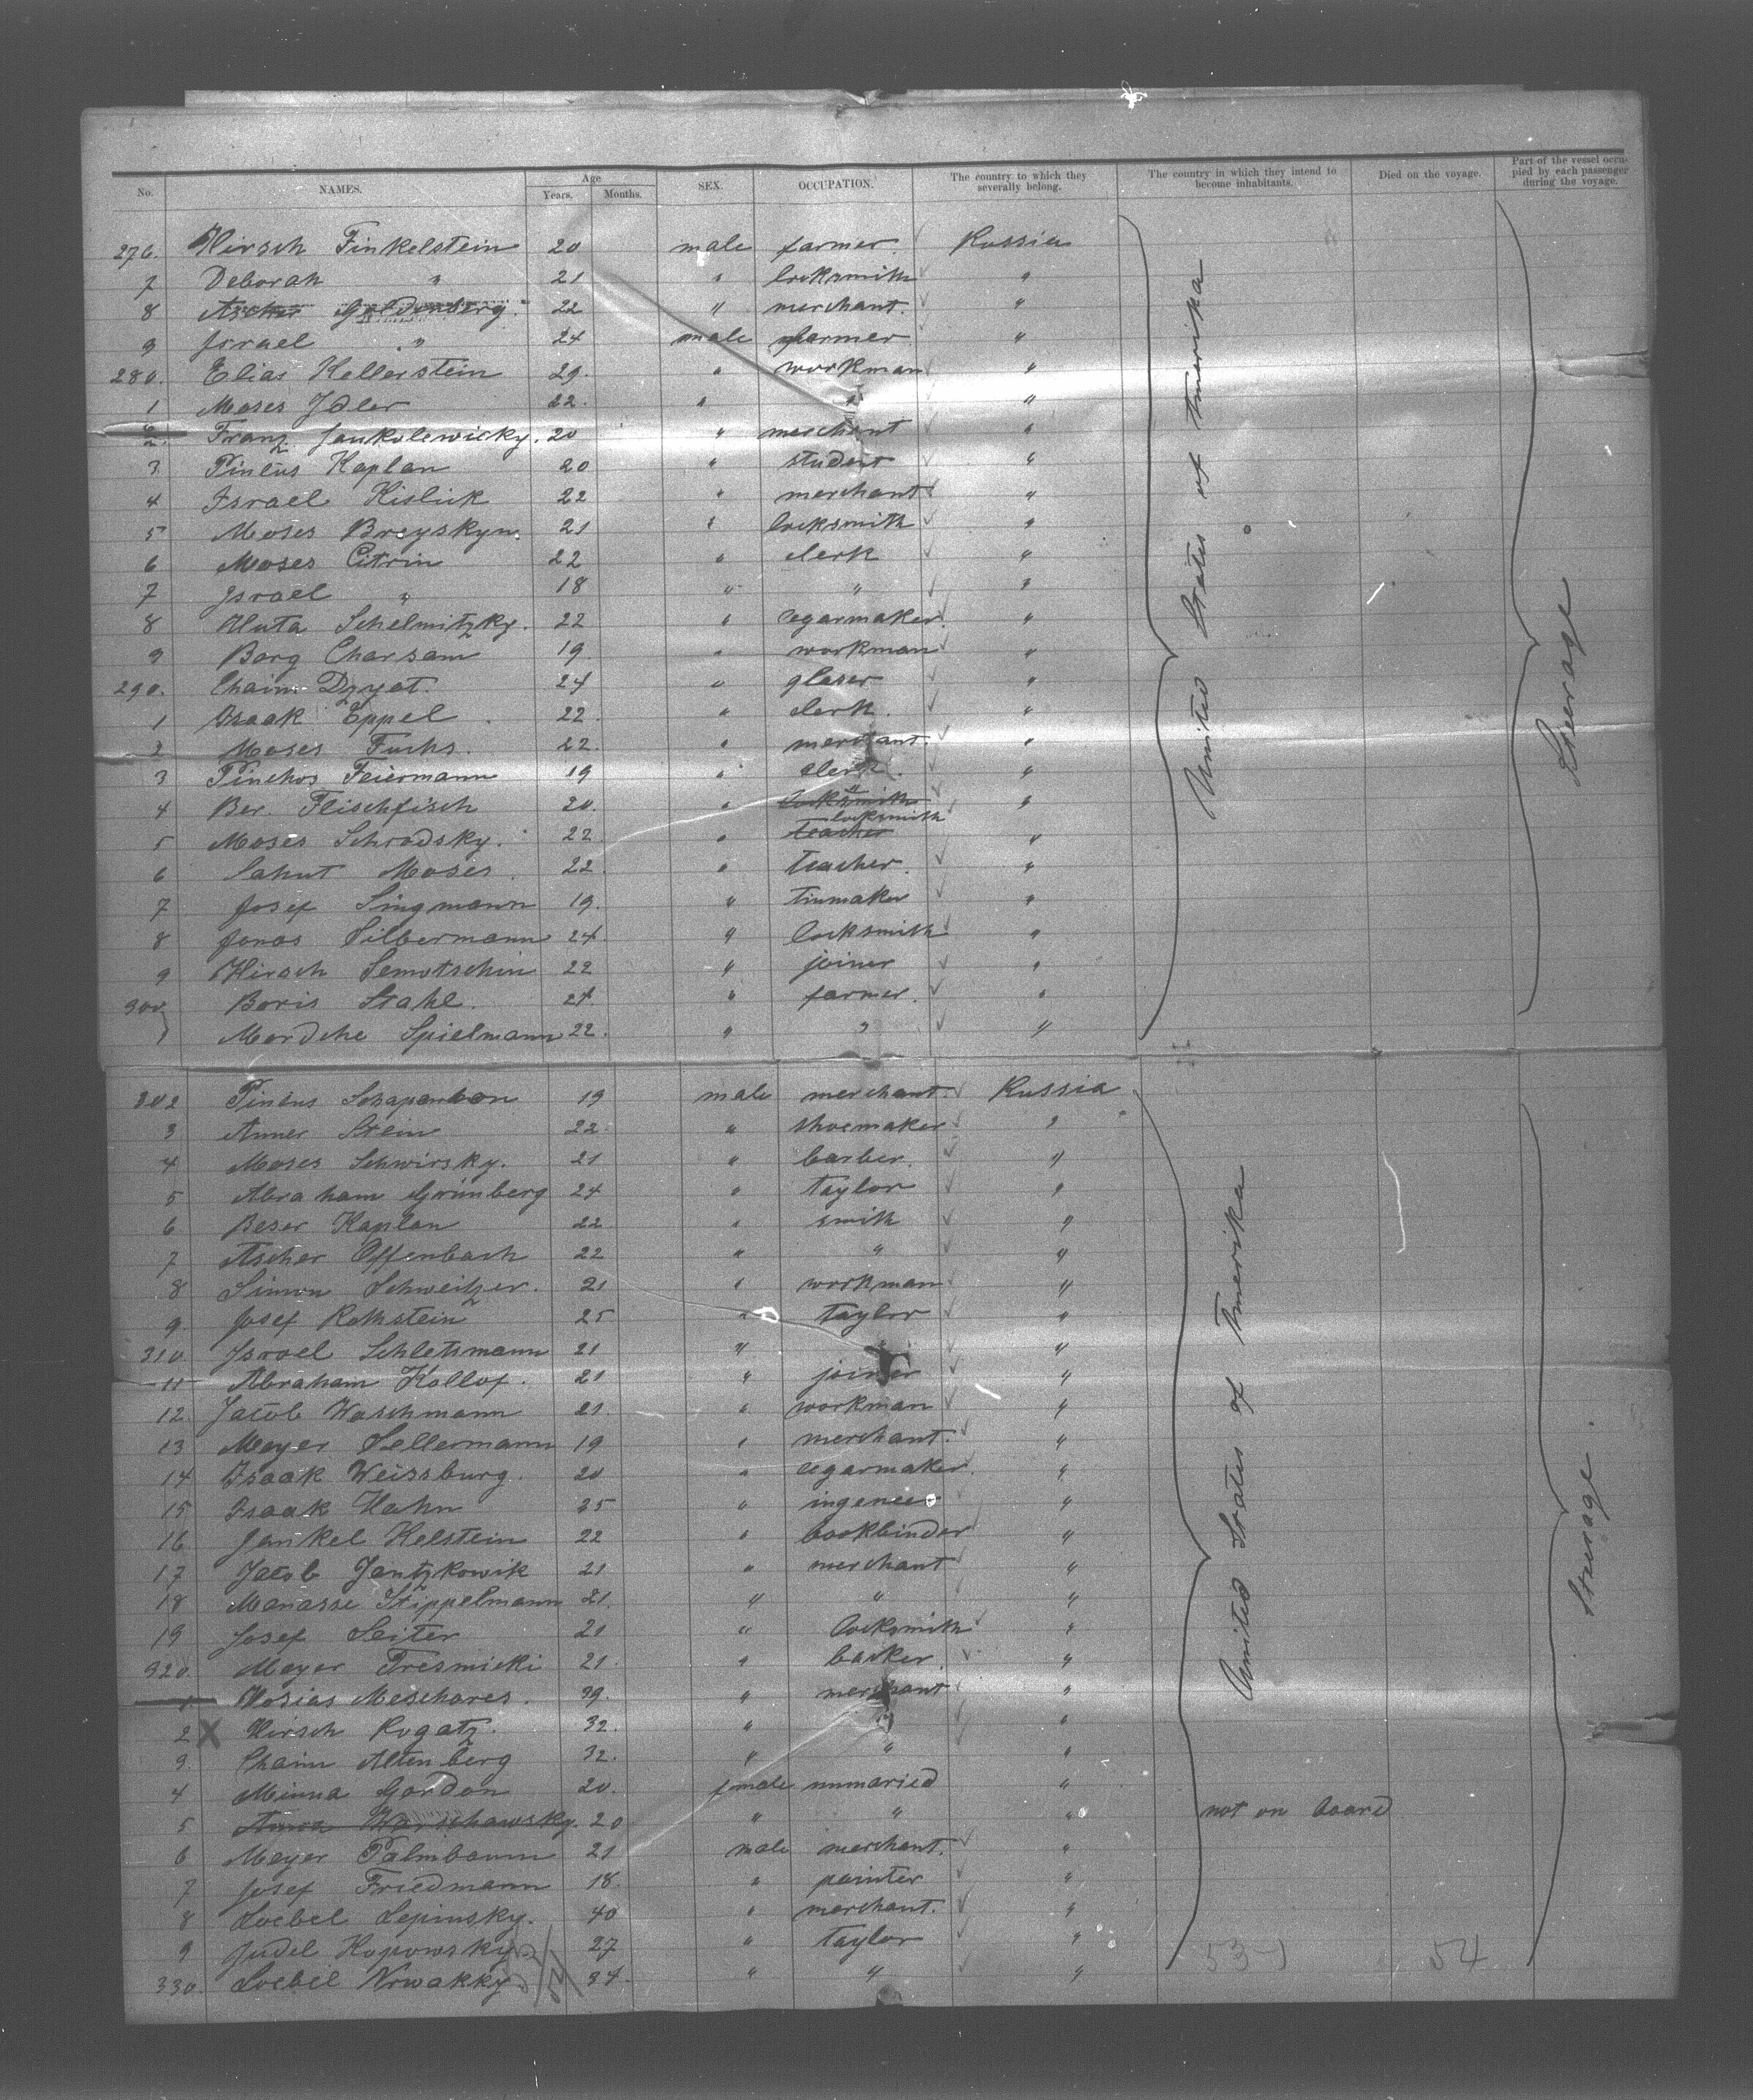 No. NAMES. Age Years. Months. SEX. OCCUPATION. The country to which they severally belong. The country in which they intend to become inhabitants. Died on the voyage. Part of the vessel occupied by each passenger during the voyage.
276. Hirsch Finkelstein 20 male farmer Russia
7 Deborah " 21 " locksmith "
8 Ascher Goldenberg 22 " merchant. "
9 Israel " 24 male farmer "
280. Elias Kellerstein 29. " workman "
1 Moses Idler 22. " " "
2. Franz Jankolewicky. 20 " merchant "
3 Pincus Kaplan 20 " student "
4 Israel Kislick 22 " merchant "
5 Moses Breyskyn. 21 " locksmith "
6 Moses Citrin 22 " clerk "
7 Israel " 18 " " "
8 Schelmitzky. 22 " cegarmaker. "
9 Borg Charsam 19. " workman "
290. Chaim Dzyat. 24 " glaser "
1 Isaak Eppel 22. " clerk. "
2 Moses Fuchs. 22. " merchant. "
3 Pinchos Feiermann 19 " clerk. "
4 Ber. Flischfisch 20. " locksmith " "
5 Moses Schrodsky. 22 " teacher locksmith "
6 Cahut Moses. 22. " teacher. "
7 Josef Singmann 19. " tinmaker "
8 Jonas Silbermann 24. " locksmith "
9 Hirsch Semotschin 22 " joiner "
300 Boris Stahl. 24. " farmer. "
1 Mordche Spielmann 22. " " "
United States of Amerika
Steerage
302 Pincus 19 male merchant. Russia
3 Anner Stein 22. " shoemaker "
4 Moses Schwirsky. 21 " barber. "
5 Abraham Grünberg 24 " taylor "
6 Beser Kaplan 22 " smith "
7 Ascher Offenbach 22 " " "
8 Simon Schweitzer. 21 " workman "
9. Josef Rothstein 25 " taylor "
310. Israel Schletsmann 21 " "
11 Abraham Kollof. 21 " joiner "
12. Jacob Waschmann 21. " workman "
13 Meyer Sellermann 19 " merchant. "
14 Isaak Weissburg. 20 " cegarmaker. "
15 Isaak Hahn 25 " ingeneer "
16 Jankel Helstein 22 " bookbinder "
17 Jacob Jantzkowik 21 " merchant "
18 Manasse Stippelmann 21. " " "
19 Josef Seiter 21 " locksmith "
320. Meyer Tresmicki 21. " backer. "
1 Hosias Meschares. 39. " merchant "
2 X Hirsch Rogatz. 32. " " "
3. Chaim Altenberg 32. " " "
4 Minna Gordon 20. female unmaried "
5 Anna Warschawsky. 20 " " " not on board
6 Meyer Palmbaum 21 male merchant. "
7 Josef Friedmann 18. " painter "
8 Loebel Lepinsky. 40 " merchant. "
9 Judel Kopowsky 27 " taylor "
330. Loebel Nowakky. 34. " " "
United States of Amerika
Steerage.
53-1 54